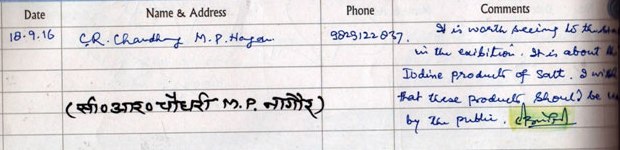 Date Name & Address Phone Comments
18.9.16 C.R. Chaudhary M.P. Nagaur 9829122837. It is worth seeing to the
in the exibition. It is about the
Iodine products of salt. I wish
(सी॰आर॰चौधरी M.P. नागौर) that these products should be
by the public.